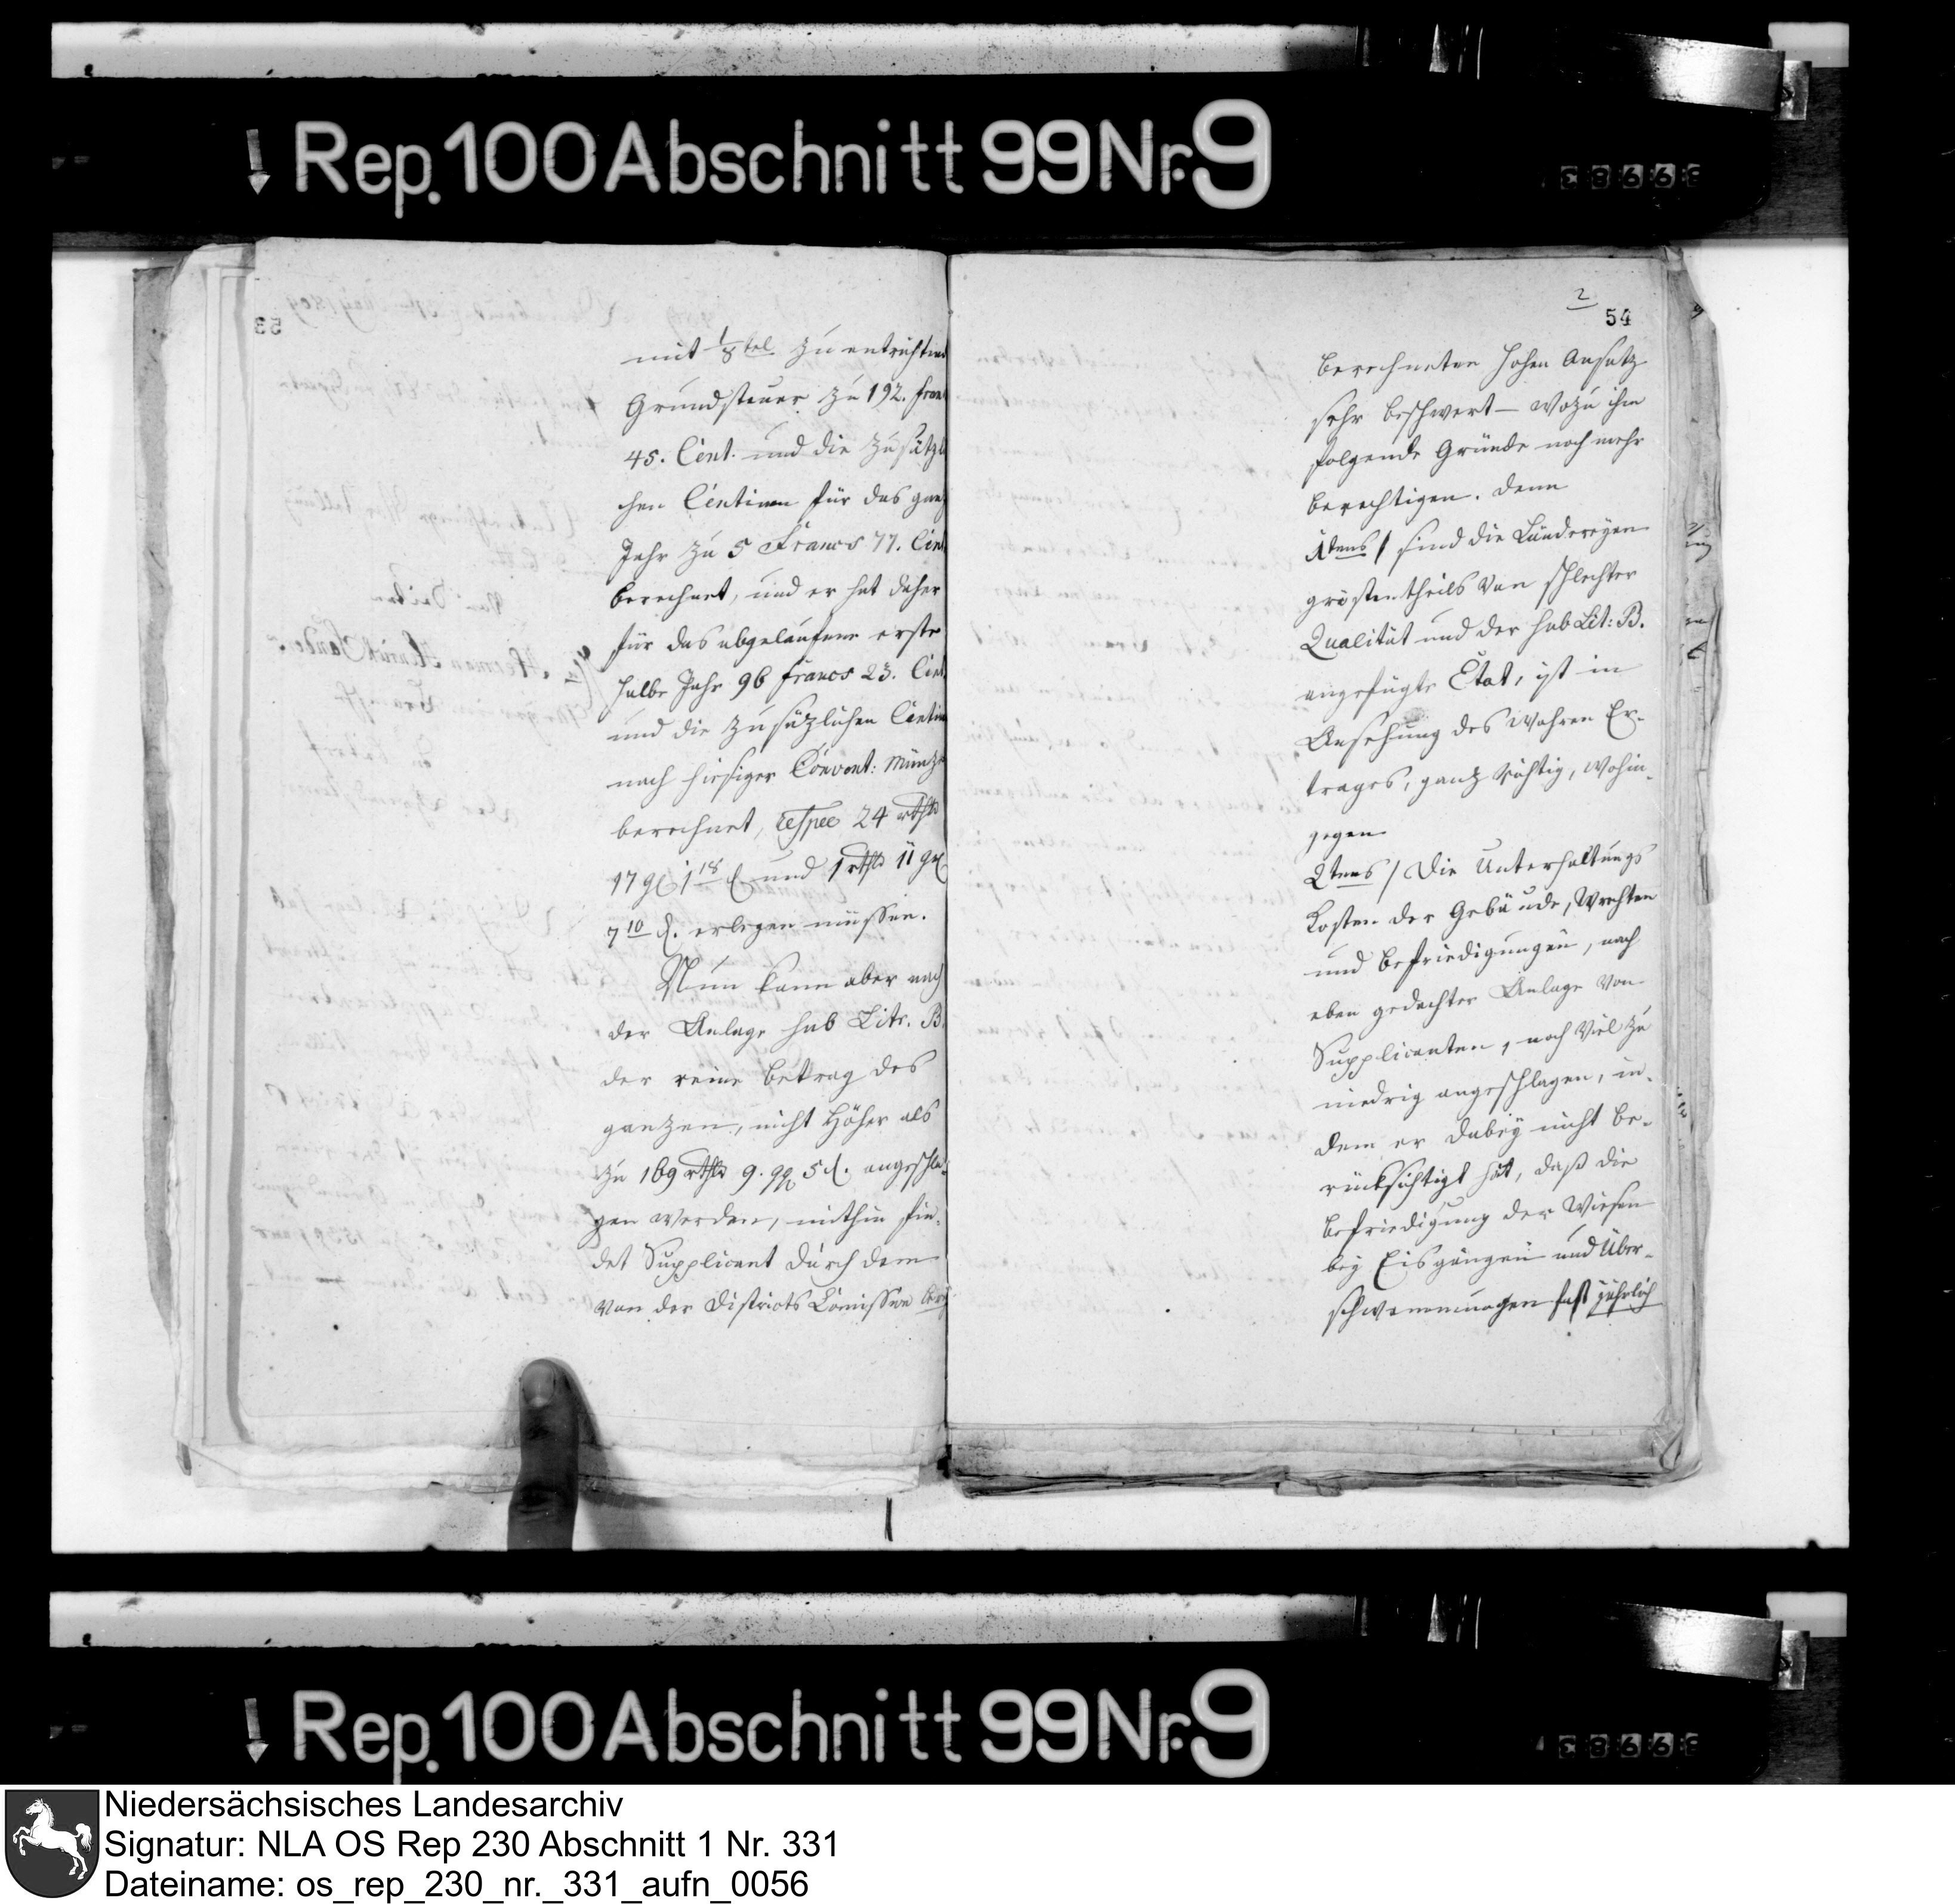 Rep. 100 Abschnitt 99 Nr. 9
mit 1/8tel zu entrichten
Grundsteuer zu 192. fran
45. Cent. und die zusätzl
chen Centimen für das gan
Jahr zu 5 Francs 77. Cent
berechnet, und er hat daher
für das abgelaufene erste
halbe Jahr 96 francs 23. Cent
und die zusäzlichen Centim
nach hiesiger Convent: Münze
berechnet, respec 24 rthlr
17 gl 1 18 und 1 rthlr 11 gl
7 10 d. erlegen müssen.
Nun kann aber nach
der Anlage sub Litr. B.
der reine Betrag des
ganzen, nicht höher als
zu 169 rthlr 9. 5 d. angeschla-
gen werden, mithin fin-
det Supplicant durch dem
von der Districts Comission
2
54
berechneten hohen Ansatz
sehr beschwert — wozu ihn
folgende Gründe noch mehr
berechtigen. Denn
1tens / sind die Ländereyen
gröstentheils von schlechter
Qualität und der sub Lit: B.
angefügte Etat, ist in
Ansehung des wahren Er-
trages, ganz richtig, wohin-
gegen
2tens / Die Unterhaltungs
Kosten der Gebäude, Wrechten
und Befriedigungen, nach
eben gedachter Anlage von
Supplicanten, noch viel zu
niedrig angeschlagen, in-
dem er dabey nicht be-
rücksichtigt hat, daß die
Befriedigung der Wiesen
bey Eisgängen und Über-
schwemmungen fast jährlich
53
Rep. 100 Abschnitt 99 Nr. 9
Niedersächsisches Landesarchiv
Signatur: NLA OS Rep 230 Abschnitt 1 Nr. 331
Dateiname: os_rep_230_nr._331_aufn_0056